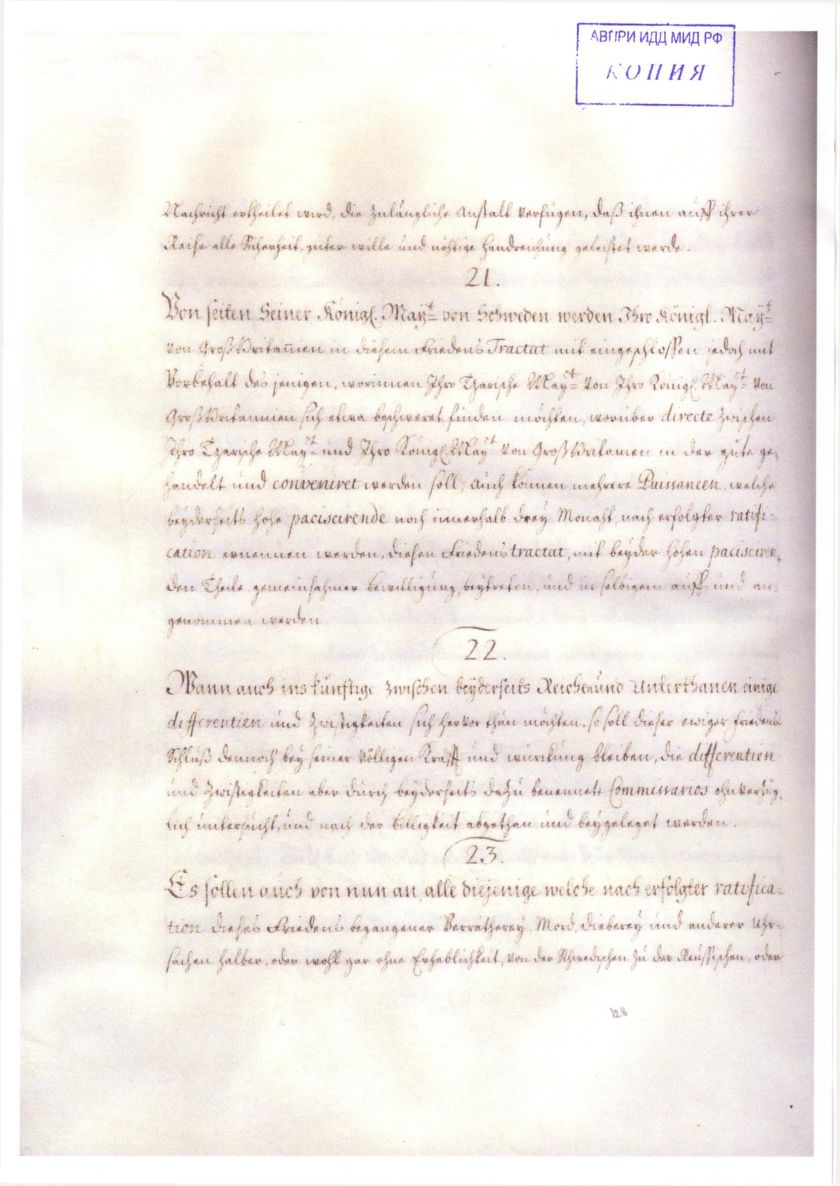 АВПРИ ИДД МИД РФ
КОПИЯ
Nachricht ertheilet wird, die zulängliche Anstalt verfügen, daß ihnen auff ihrer
Reise alle Sicherheit, guter wille und nöhtige Handreichung geleistet werde.
21.
Von seiten Seiner Königl. Mayt von Schweden werden Ihro Königl. Mayt
von Groß Britannien in diesem Friedens Tractat mit eingeschlossen jedoch mit
Vorbehalt des jenigen, worinnen Ihro Czarische Mayt von Ihro Königl. Mayt von
Groß Britannien sich etwa beschweret finden möchten, worüber directe zwischen
Ihro Czarische Mayt und Ihro Königl. Mayt von Groß Britannien in der güte ge-
handelt und conveniret werden soll; auch können mehrere Puissancen, welche
beyderseits hohe paciscirende noch innerhalb drey Monaht, nach erfolgter ratifi-
cation ernennen werden, diesen Friedens tractat, mit beyder hohen paciscirem,
den Theile gemeinsahmer bewilligung, beytreten, und in selbigem auff- und an-
genommen werden
22.
Wann auch ins künftige zwischen beyderseits Reichen und Unterthanen einige
differentien und Zwistigkeiten sich hervor thun möchten, so soll dieser ewiger Friedens
Schluß dennoch bey seiner völligen Krafft und würckung bleiben, die differentien
und Zwistigkeiten aber durch beyderseits dazu benennete Commissarios ohnverzüg-
lich untersucht, und nach der billigkeit abgethan und beygeleget werden.
23.
Es sollen auch von nun an, alle diejenige welche nach erfolgter ratifica-
tion dieses Friedens begangener Verrätherey, Mord, dieberey und anderer Uhr-
sachen halber, oder wohl gar ohne Erheblichkeit, von der Schwedischen zu der Reussischen, oder
128